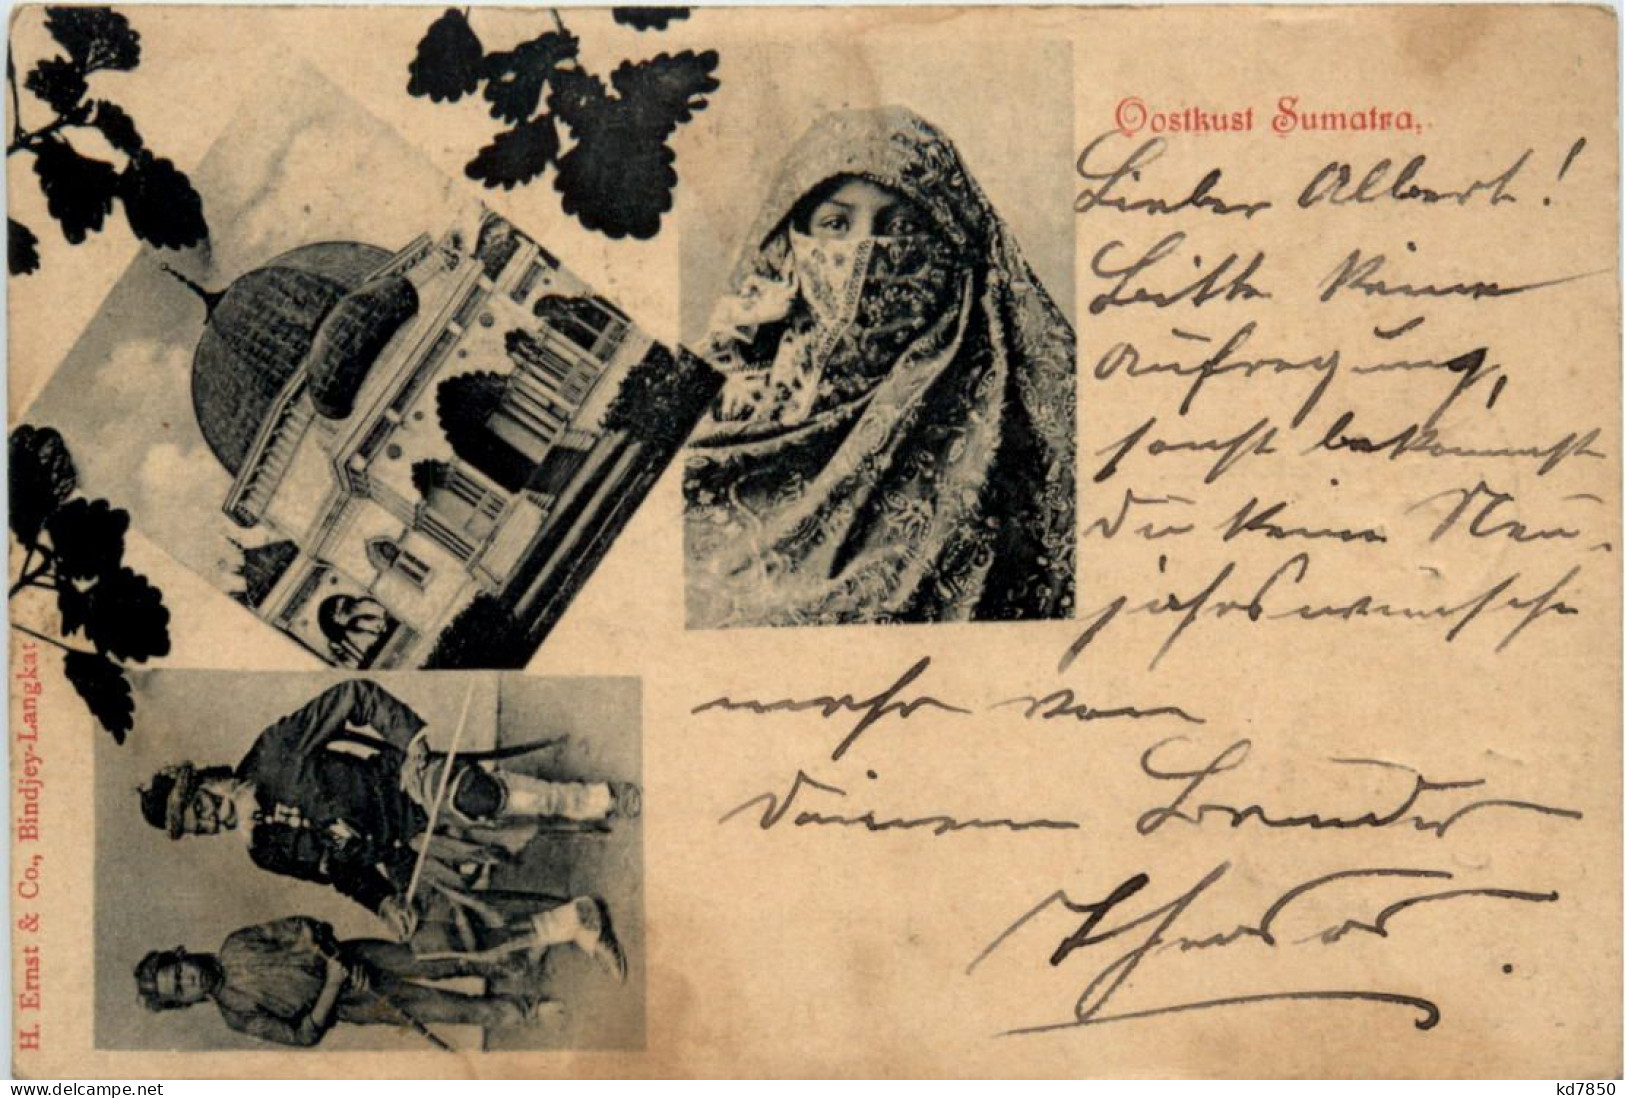 Oostkust Sumatra,
Lieber Albert!
Bitte keine
Aufregung,
sonst bekommst
Du kein Neu-
jahrswunsch
mehr von
Deinem Bruder
H. Ernst & Co., Bindjey-Langkat
www.delcampe.net
kd7850